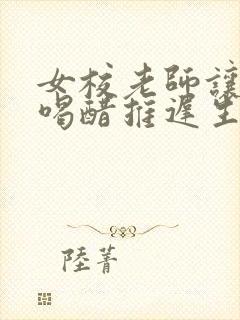 女校老師讓
喝醋推遲生
陸菁